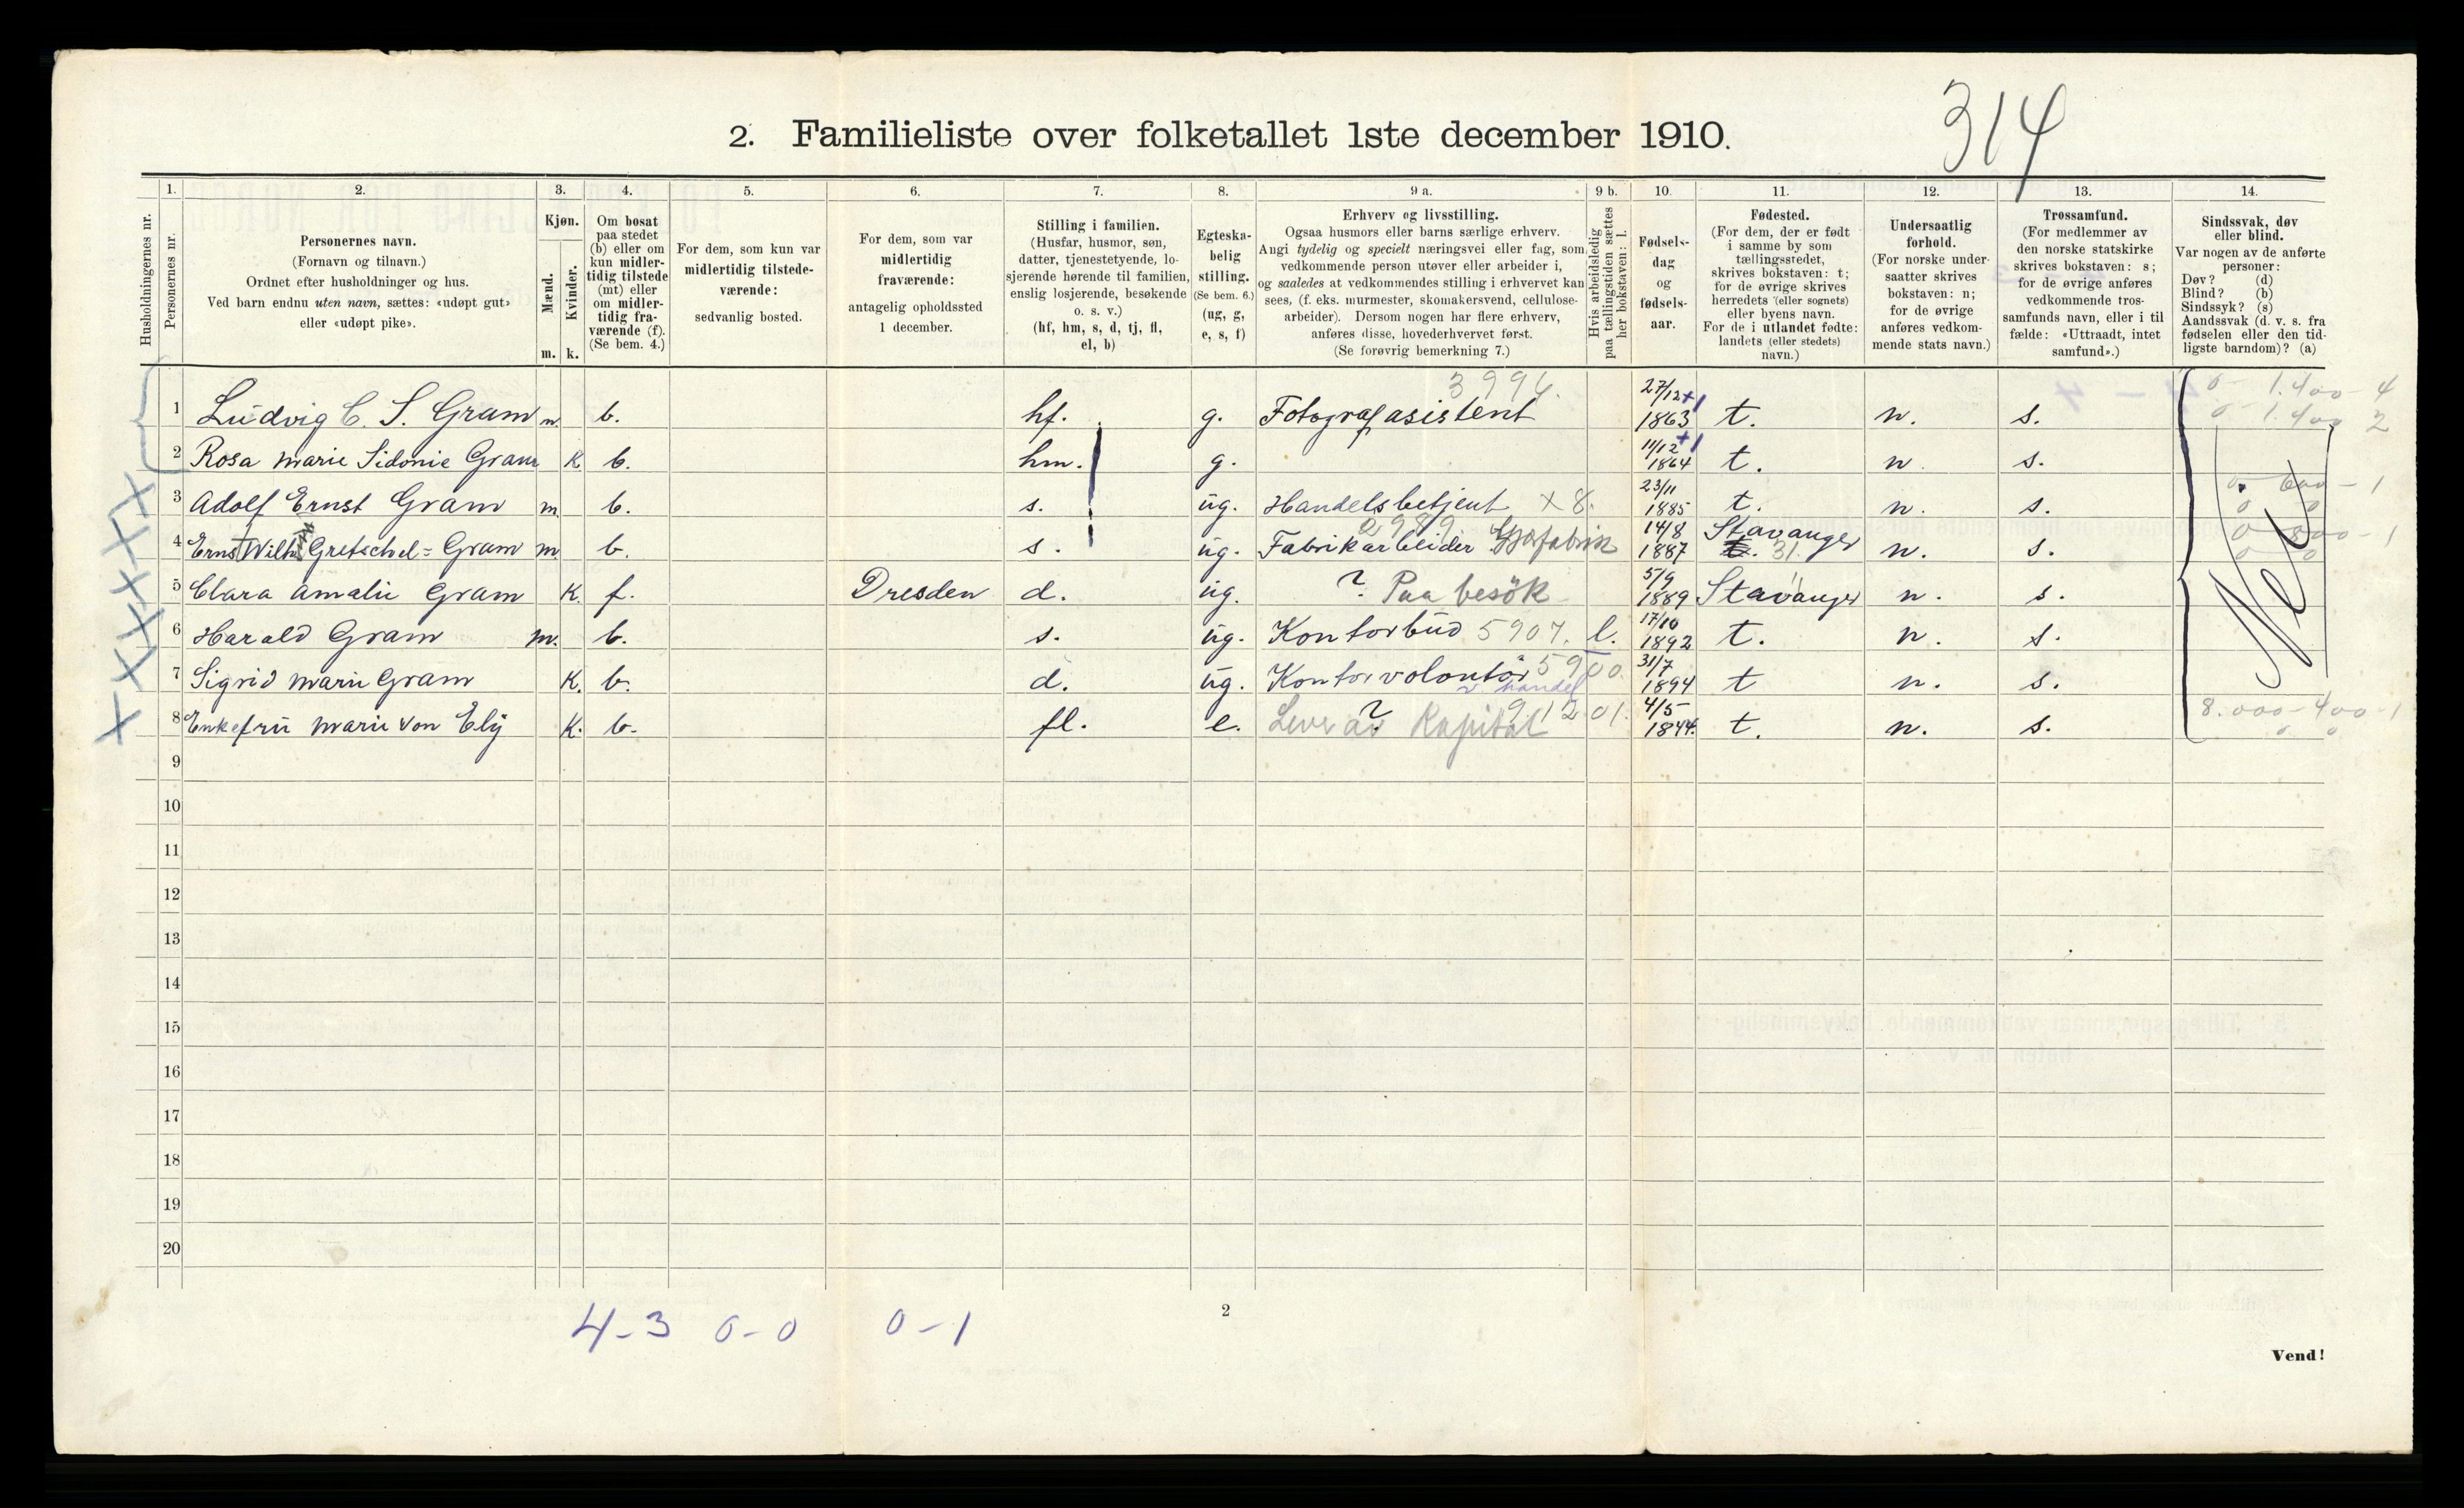 314
2. Familieliste over folketallet 1ste december 1910.
Husholdningernes nr.
1.
Personernes nr.
2.
Personernes navn.
(Fornavn og tilnavn.)
Ordnet efter husholdninger og hus.
Ved barn endnu uten navn, sættes: «udøpt gut»
eller «udøpt pike».
3.
Kjøn.
Mænd.
Kvinder.
m. k.
4.
Om bosat
paa stedet
(b) eller om
kun midler-
tidig tilstede
(mt) eller
om midler-
tidig fra-
værende (f).
(Se bem. 4.)
5.
For dem, som kun var
midlertidig tilstede-
værende:
sedvanlig bosted.
6.
For dem, som var
midlertidig
fraværende:
antagelig opholdssted
1 december.
7.
Stilling i familien.
(Husfar, husmor, søn,
datter, tjenestetyende, lo-
sjerende hørende til familien,
enslig losjerende, besøkende
o. s. v.)
(hf, hm, s, d, tj, fl,
el, b)
8.
Egteska-
belig
stilling.
(Se bem. 6.)
(ug, g,
e, s, f)
9 a.
Erhverv og livsstilling.
Ogsaa husmors eller barns særlige erhverv.
Angi tydelig og specielt næringsvei eller fag, som
vedkommende person utøver eller arbeider i,
og saaledes at vedkommendes stilling i erhvervet kan
sees, (f. eks. murmester, skomakersvend, cellulose-
arbeider). Dersom nogen har flere erhverv,
anføres disse, hovederhvervet først.
(Se forøvrig bemerkning 7.)
9 b.
Hvis arbeidsledig
paa tællingstiden sættes
her bokstaven: l.
10.
Fødsels-
dag
og
fødsels-
aar.
11.
Fødested.
(For dem, der er født
i samme by som
tællingsstedet,
skrives bokstaven: t;
for de øvrige skrives
herredets (eller sognets)
eller byens navn.
For de i utlandet fødte:
landets (eller stedets)
navn.)
12.
Undersaatlig
forhold.
(For norske under-
saatter skrives
bokstaven: n;
for de øvrige
anføres vedkom-
mende stats navn.)
13.
Trossamfund.
(For medlemmer av
den norske statskirke
skrives bokstaven: s;
for de øvrige anføres
vedkommende tros-
samfunds navn, eller i til
fælde: «Uttraadt, intet
samfund».)
14.
Sindssvak, døv
eller blind.
Var nogen av de anførte
personer:
Døv? (d)
Blind? (b)
Sindssyk? (s)
Aandssvak (d. v. s. fra
fødselen eller den tid-
ligste barndom)? (a)
1 Ludvig C. S. Gram m. b. hf. g. Fotografasistent 27/12 1863 t. n. s. 0 - 1.400 - 4
0 - 1.400 2
2 Rosa Marie Sidonie Gram K b. hm. g. 11/12 1864 t. n. s.
3 Adolf Ernst Gram m. b. s. ug. Handelsbetjent x 8. 23/11 1885 t. n. s. 0 600 - 1
4 Ernst Wilh. Gretschel=Gram m. b. s. ug. Fabrikarbeider 2989 14/8 1887 Stavanger t. 31. n. s. 0 800 - 1
5 Clara Amalie Gram K. f. Dresden d. ug. ? Paa besök 5/9 1889 Stavanger n. s.
6 Harald Gram m. b. s. ug. Kontorbud 5907. l. 17/10 1892 t. n. s.
7 Sigrid Marie Gram K. b. d. ug. Kontorvolontör 5900. v. handel 31/7 1894 t n. s.
8 Enkefru Marie von Ely K. b. fl. e. ? Lever av Kapital 91201. 4/5 1844. t. n. s. 8.000 - 400 - 1
Nei
9
10
11
12
13
14
15
16
17
18
19
20
4-3 0-0 0-1
2
Vend!